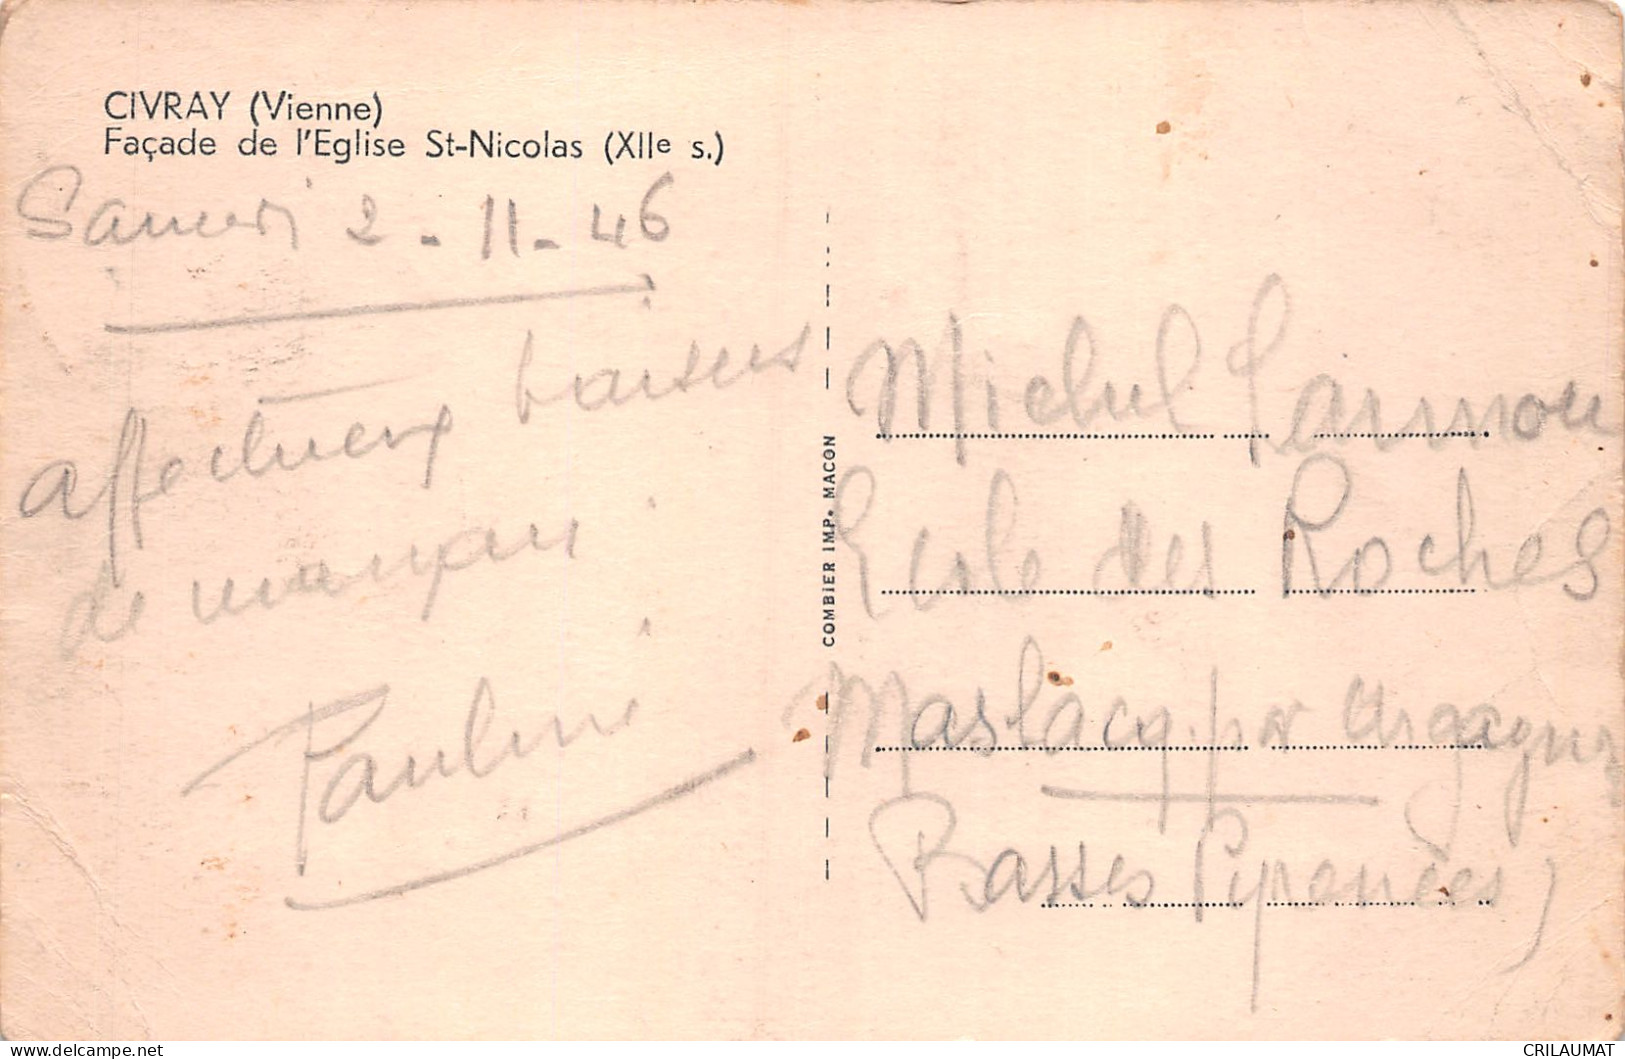 CIVRAY (Vienne)
Façade de l'Eglise St-Nicolas (XIIe s.)
Samedi 2-11-46
affectueux baisers
de maman
Pauline
COMBIER IMP. MACON
Michel
Ecole des Roches
Maslacq par
Basses Pyrenées)
CRILAUMAT